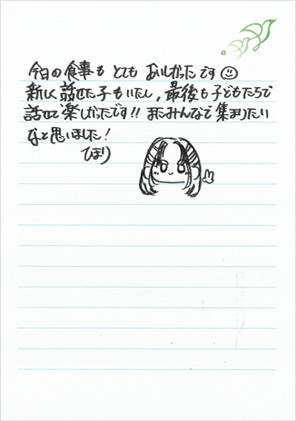 今日の食事も とても おいしかったです☺
新しく話せた子もいたし、最後も子どもたちで
話せて楽しかったです!! またみんなで集まりたい
なと思いました!
ひまり